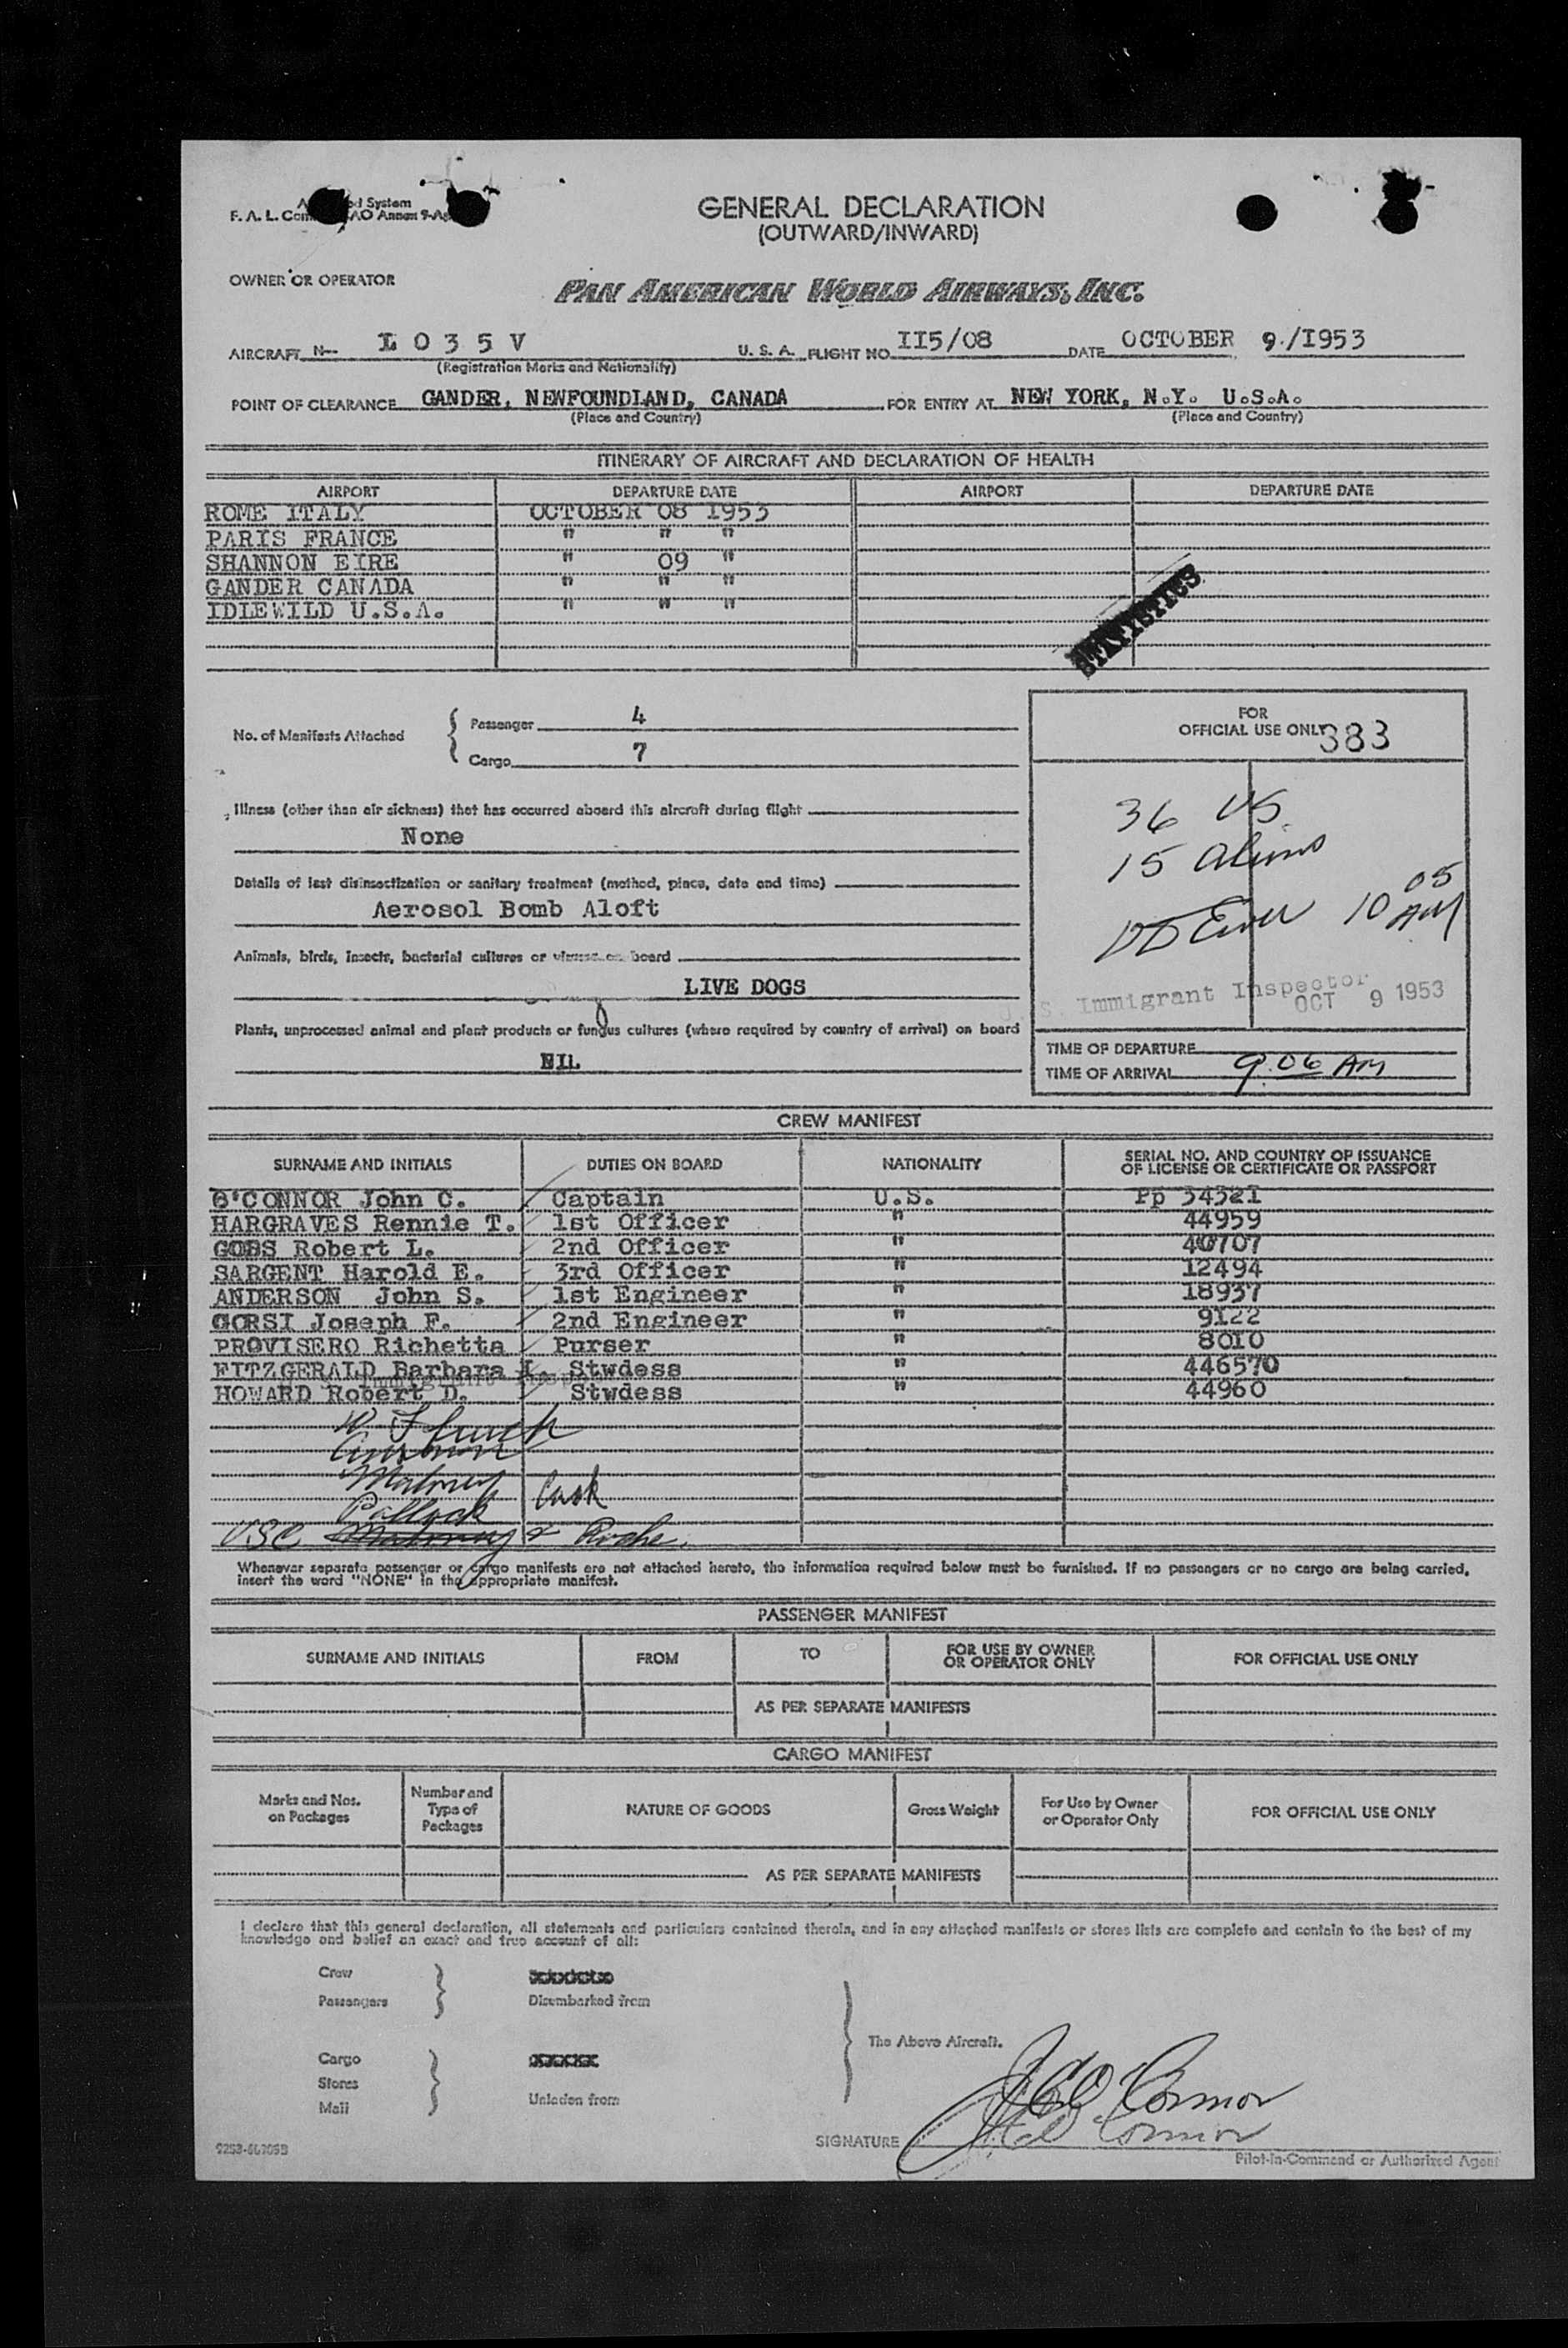 GENERAL DECLARATION
(OUTWARD/INWARD)
F. A. L. AO Annex 9-
System
OWNER OR OPERATOR
PAN AMERICAN WORLD AIRWAYS, INC.
AIRCRAFT N- 1 0 3 5 V U. S. A. FLIGHT NO. II5/08 DATE OCTOBER 9./I953
(Registration Marks and Nationality)
POINT OF CLEARANCE GANDER, NEWFOUNDLAND, CANADA FOR ENTRY AT NEW YORK, N.Y. U.S.A.
(Place and Country) (Place and Country)
ITINERARY OF AIRCRAFT AND DECLARATION OF HEALTH
AIRPORT DEPARTURE DATE AIRPORT DEPARTURE DATE
ROME ITALY OCTOBER 08 I953
PARIS FRANCE " " "
SHANNON EIRE " 09 "
GANDER CANADA " " "
IDLEWILD U.S.A. " " "
STATISTICS
No. of Manifests Attached { Passenger 4
Cargo 7
FOR
OFFICIAL USE ONLY 383
36 US
15 aliens
10 05 AM
U.S. Immigrant Inspector
OCT 9 1953
TIME OF DEPARTURE
TIME OF ARRIVAL 9.06 AM
Illness (other than air sickness) that has occurred aboard this aircraft during flight
None
Details of last disinsectization or sanitary treatment (method, place, date and time)
Aerosol Bomb Aloft
Animals, birds, insects, bacterial cultures or viruses on board
LIVE DOGS
Plants, unprocessed animal and plant products or fungus cultures (where required by country of arrival) on board
NIL
CREW MANIFEST
SURNAME AND INITIALS DUTIES ON BOARD NATIONALITY SERIAL NO. AND COUNTRY OF ISSUANCE
OF LICENSE OR CERTIFICATE OR PASSPORT
O'CONNOR John C. Captain U.S. Pp 34321
HARGRAVES Rennie T. 1st Officer " 44959
GOSS Robert L. 2nd Officer " 40707
SARGENT Harold E. 3rd Officer " 12494
ANDERSON John S. 1st Engineer " 18937
GORSI Joseph F. 2nd Engineer " 9122
PROVISERO Richetta Purser " 8010
FITZGERALD Barbara Stwdess " 446570
HOWARD Robert D. Stwdess " 44960
Immigrant Insp
Maloney
Pollock
USC Maloney & Roche.
Whenever separate passenger or cargo manifests are not attached hereto, the information required below must be furnished. If no passengers or no cargo are being carried,
insert the word "NONE" in the appropriate manifest.
PASSENGER MANIFEST
SURNAME AND INITIALS FROM TO FOR USE BY OWNER
OR OPERATOR ONLY FOR OFFICIAL USE ONLY
AS PER SEPARATE MANIFESTS
CARGO MANIFEST
Marks and Nos.
on Packages Number and
Type of
Packages NATURE OF GOODS Gross Weight For Use by Owner
or Operator Only FOR OFFICIAL USE ONLY
AS PER SEPARATE MANIFESTS
I declare that this general declaration, all statements and particulars contained therein, and in any attached manifests or stores lists are complete and contain to the best of my
knowledge and belief an exact and true account of all:
Crew
Passengers
Disembarked from
The Above Aircraft.
Cargo
Stores
Mail
Unladen from
SIGNATURE JCO'Connor
JCO'Connor
Pilot-in-Command or Authorized Agent